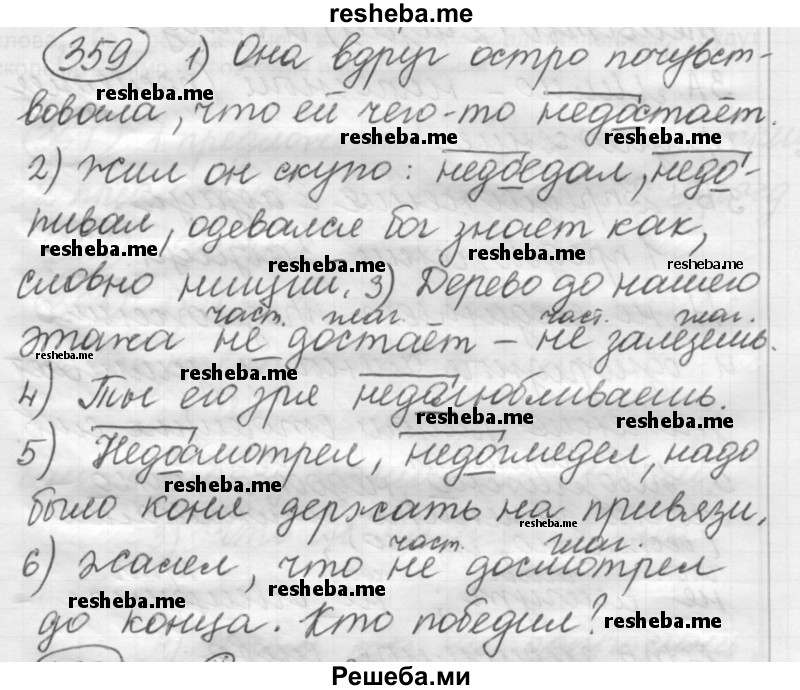 resheba.me
359 1) Она вдруг остро почувст-
resheba.me
вовала, что ей чего-то недостаёт.
resheba.me resheba.me
2) Жил он скупо: недоедал, недо-
пивал, одевался бог знает как,
resheba.me resheba.me resheba.me
словно нищий. 3) Дерево до нашего
част. глаг. част. глаг.
этажа не достаёт – не залезешь.
resheba.me resheba.me resheba.me
4) Ты его зря недолюбливаешь.
resheba.me resheba.me
5) Недосмотрел, недоглядел, надо
resheba.me
было коня держать на привязи.
resheba.me
част. глаг.
6) Жалел, что не досмотрел
resheba.me resheba.me
до конца. Кто победил?
resheba.me
Решеба.ми